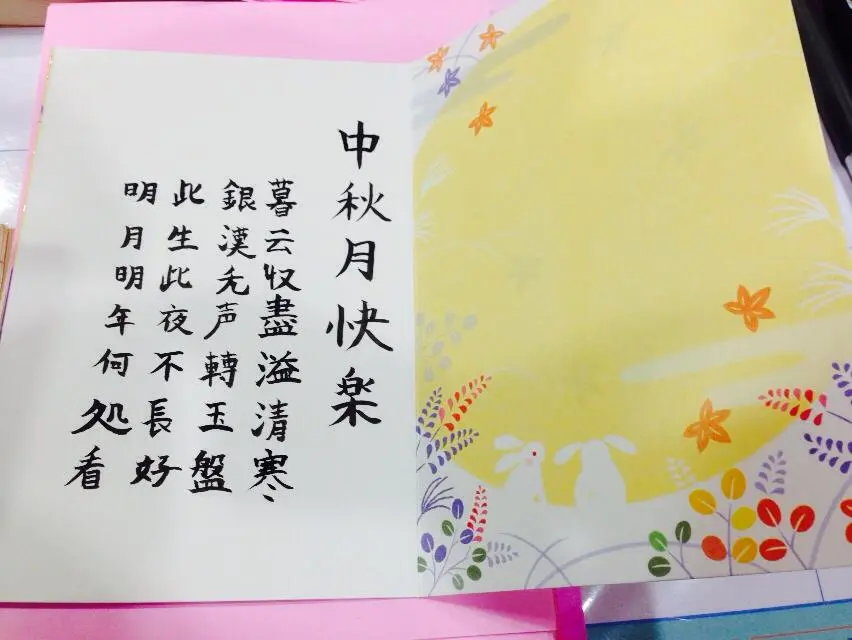 中秋月快楽
暮云収盡溢清寒
銀漢无声轉玉盤
此生此夜不長好
明月明年何処看